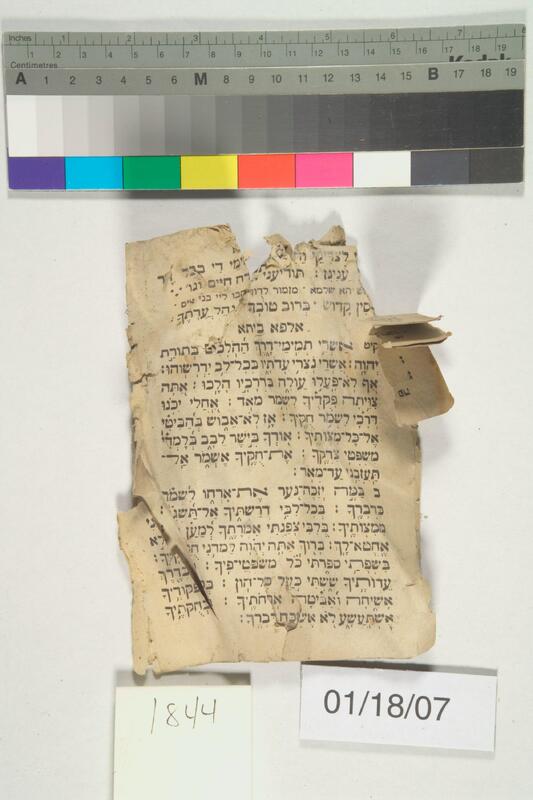 Inches 1 2 3 4 5 6 7 8
1 2 3 4 5 6 7 8 9 10 11 12 13 14 15 16 17 18 19
Centimetres
Kodak
A 1 2 3 4 5 6 M 8 9 10 11 12 13 14 15 B 17 18 19
ימי די בכד
ענינן : תודיעני חיים
שלמא . מזמור לדוד
קדוש . ברוב טובך
אלפא ביתא
קיט אשרי תמימי־דרך ההלכים בתורת
יהוה: אשרי נצרי עדתיו בכל־לב ידרשוהו:
אף לא־פעלו עולה בדרכיו הלכו : אתה
צויתה פקדיך לשמר מאד : אחלי יכנו
דרכי לשמר חקיך : אז לא־אבוש בהביטי
אל־כל־מצותיך : אודך בישר לבב בלמדי
משפטי צדקך : את־חקיך אשמר אל־
תעזבני עד־מאד:
ב במה יזכה־נער את־ארחו לשמר
כדברך : בכל־לבי דרשתיך אל־תשגני
ממצותיך : בלבי צפנתי אמרתך למען לא
אחטא־לך: ברוך אתה יהוה למדני
בשפתי ספרתי כל משפטי־פיך : בדרך
עדותיך ששתי כעל כל־הון : בפקודיך
אשיחה ואביטה ארחתיך : בחקתיך
אשתעשע לא אשכח דברך :
1844
01/18/07